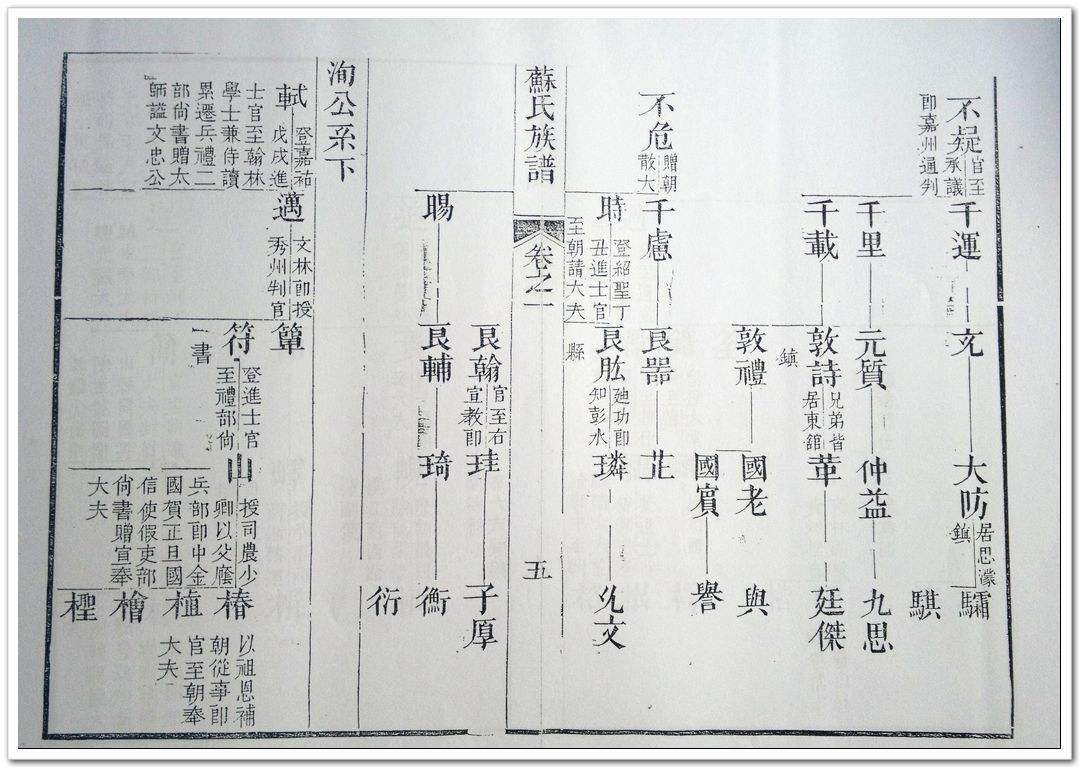 不疑
官至
承議
郎嘉州通判
千運
充
大防
居思濛
鎮
驌
騏
千里
元質
仲益
九思
千載
敦詩
兄弟皆
居東舘
鎮
革
廷傑
敦禮
國老
與
國賓
譽
不危
贈朝
散大
千慮
良器
芷
時
登紹聖丁
丑進士官
至朝請大夫
良肱
廸功郎
知彭水
縣
璘
允文
蘇氏族譜
卷之一
五
良翰
官至右
宣教郎
珪
子厚
暘
良輔
琦
衡
衍
洵公系下
軾
登嘉祐
戊戌進
士官至翰林
學士兼侍讀
累遷兵禮二
部尚書贈太
師謚文忠公
邁
文林郎授
秀州判官
簞
符
登進士官
至禮部尚
書
山
授司農少
卿以父廕
兵部郎中金
國賀正旦國
信使假吏部
尚書贈宣奉
大夫
椿
以祖恩補
朝從事郎
官至朝奉
大夫
植
檜
檉